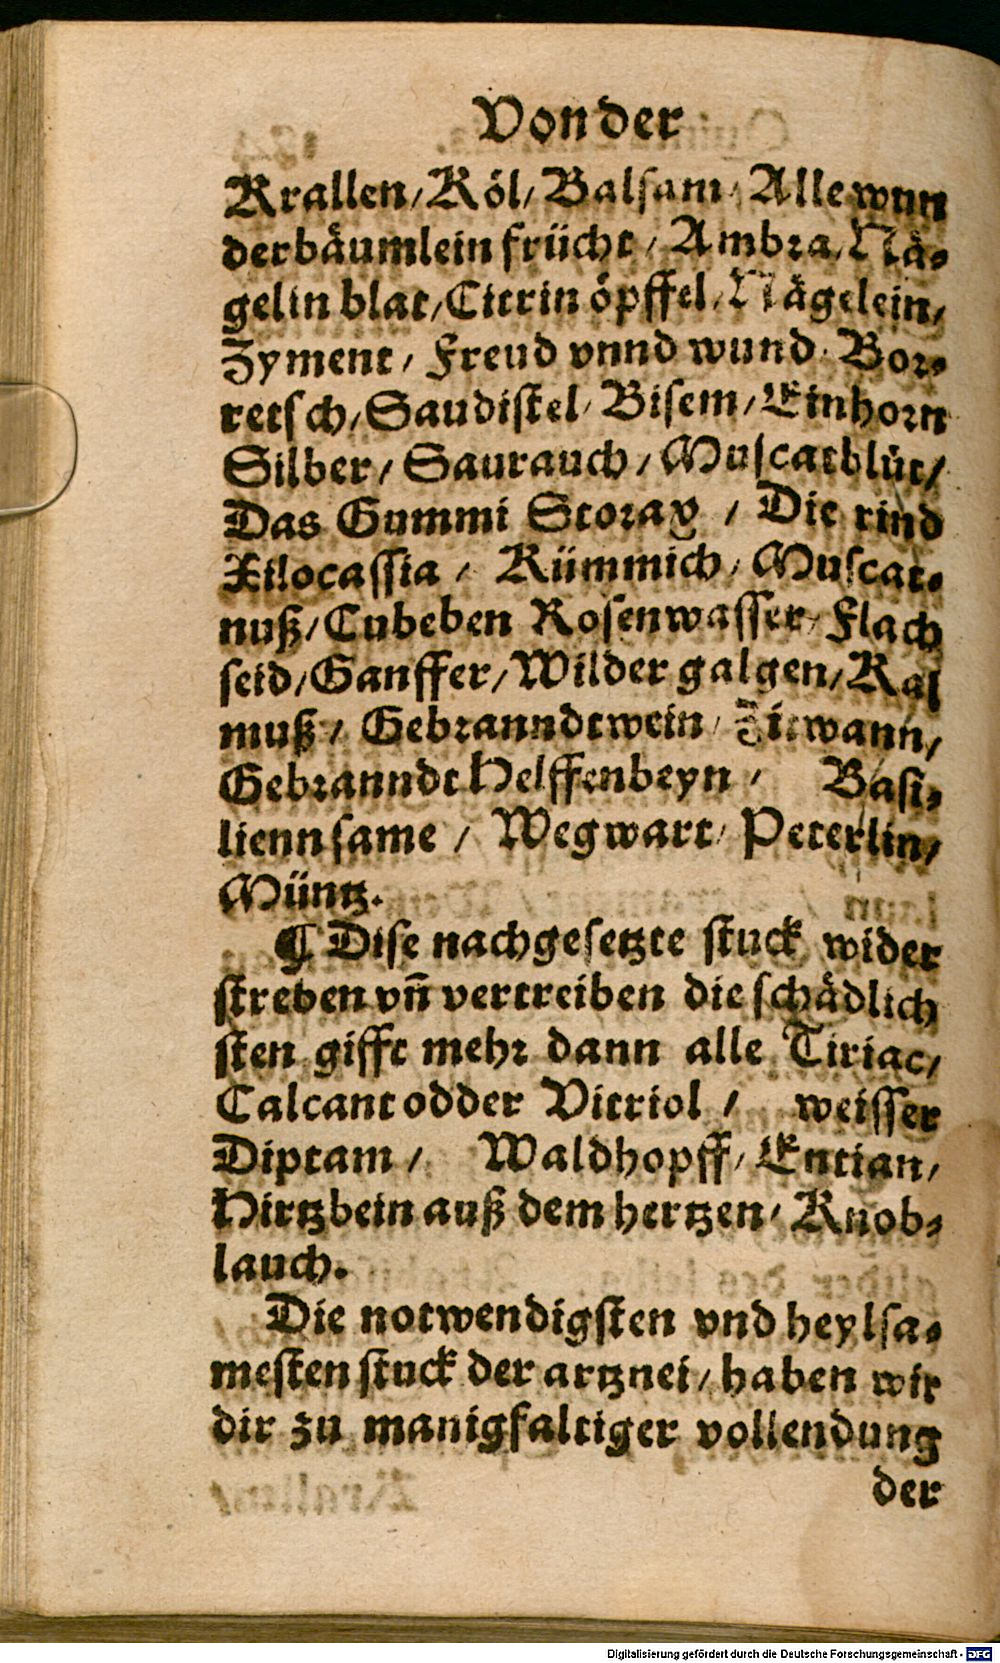 Von der
Krallen/ Köl/ Balsam/ Alle wun
derbäumlein frücht/ Ambra/ Nä-
gelin blat/ Citrin öpffel/ Nägelein/
Zyment/ Freud vnnd wund/ Bor-
retsch/ Saudistel/ Bisem/ Einhorn
Silber/ Saurauch/ Muscatblüt/
Das Gummi Storax/ Die rind
Xilocassia/ Kümmich/ Muscat-
nuß/ Cubeben Rosenwasser/ Flach
seid/ Ganffer/ Wilder galgen/ Kal
muß/ Gebranndtwein/ Zitwann/
Gebranndt Helffenbeyn/ Basi-
lienn same/ Wegwart/ Peterlin/
Müntz.
¶ Dise nachgesetzte stuck wider
streben vñ vertreiben die schädlich
sten gifft mehr dann alle Tiriac/
Calcant odder Vitriol/ weisser
Diptam/ Waldhopff/ Entian/
Hirtzbein auß dem hertzen/ Knob-
lauch.
Die notwendigsten vnd heylsa-
mesten stuck der artznei/ haben wir
dir zu manigfaltiger vollendung
der
Digitalisierung gefördert durch die Deutsche Forschungsgemeinschaft - DFG